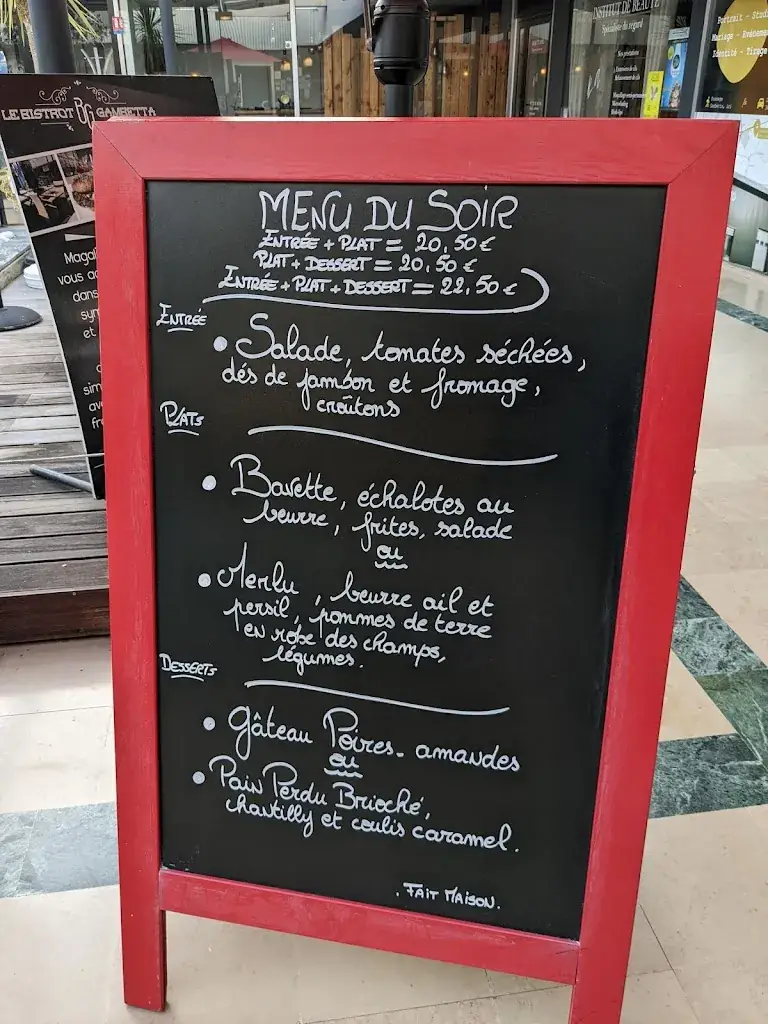 INSTITUT DE BEAUTÉ
Spécialiste du regard
Portrait - Stud
Mariage - Evéneme
Identité - Tirage
LE BISTROT BG GAMBETTA
Magal
vous ac
dans
sym
et
sim
ave
fr
MENU DU SOIR
ENTRÉE + PLAT = 20,50 €
PLAT + DESSERT = 20,50 €
ENTRÉE + PLAT + DESSERT = 22,50 €
ENTRÉE
• Salade, tomates séchées,
dés de jambon et fromage,
croûtons
PLATS
• Bavette, échalotes au
beurre, frites, salade
ou
• Merlu, beurre ail et
persil, pommes de terre
en robe des champs,
légumes.
DESSERTS
• Gâteau Poires-amandes
ou
• Pain Perdu Brioché,
chantilly et coulis caramel.
. FAIT MAISON.